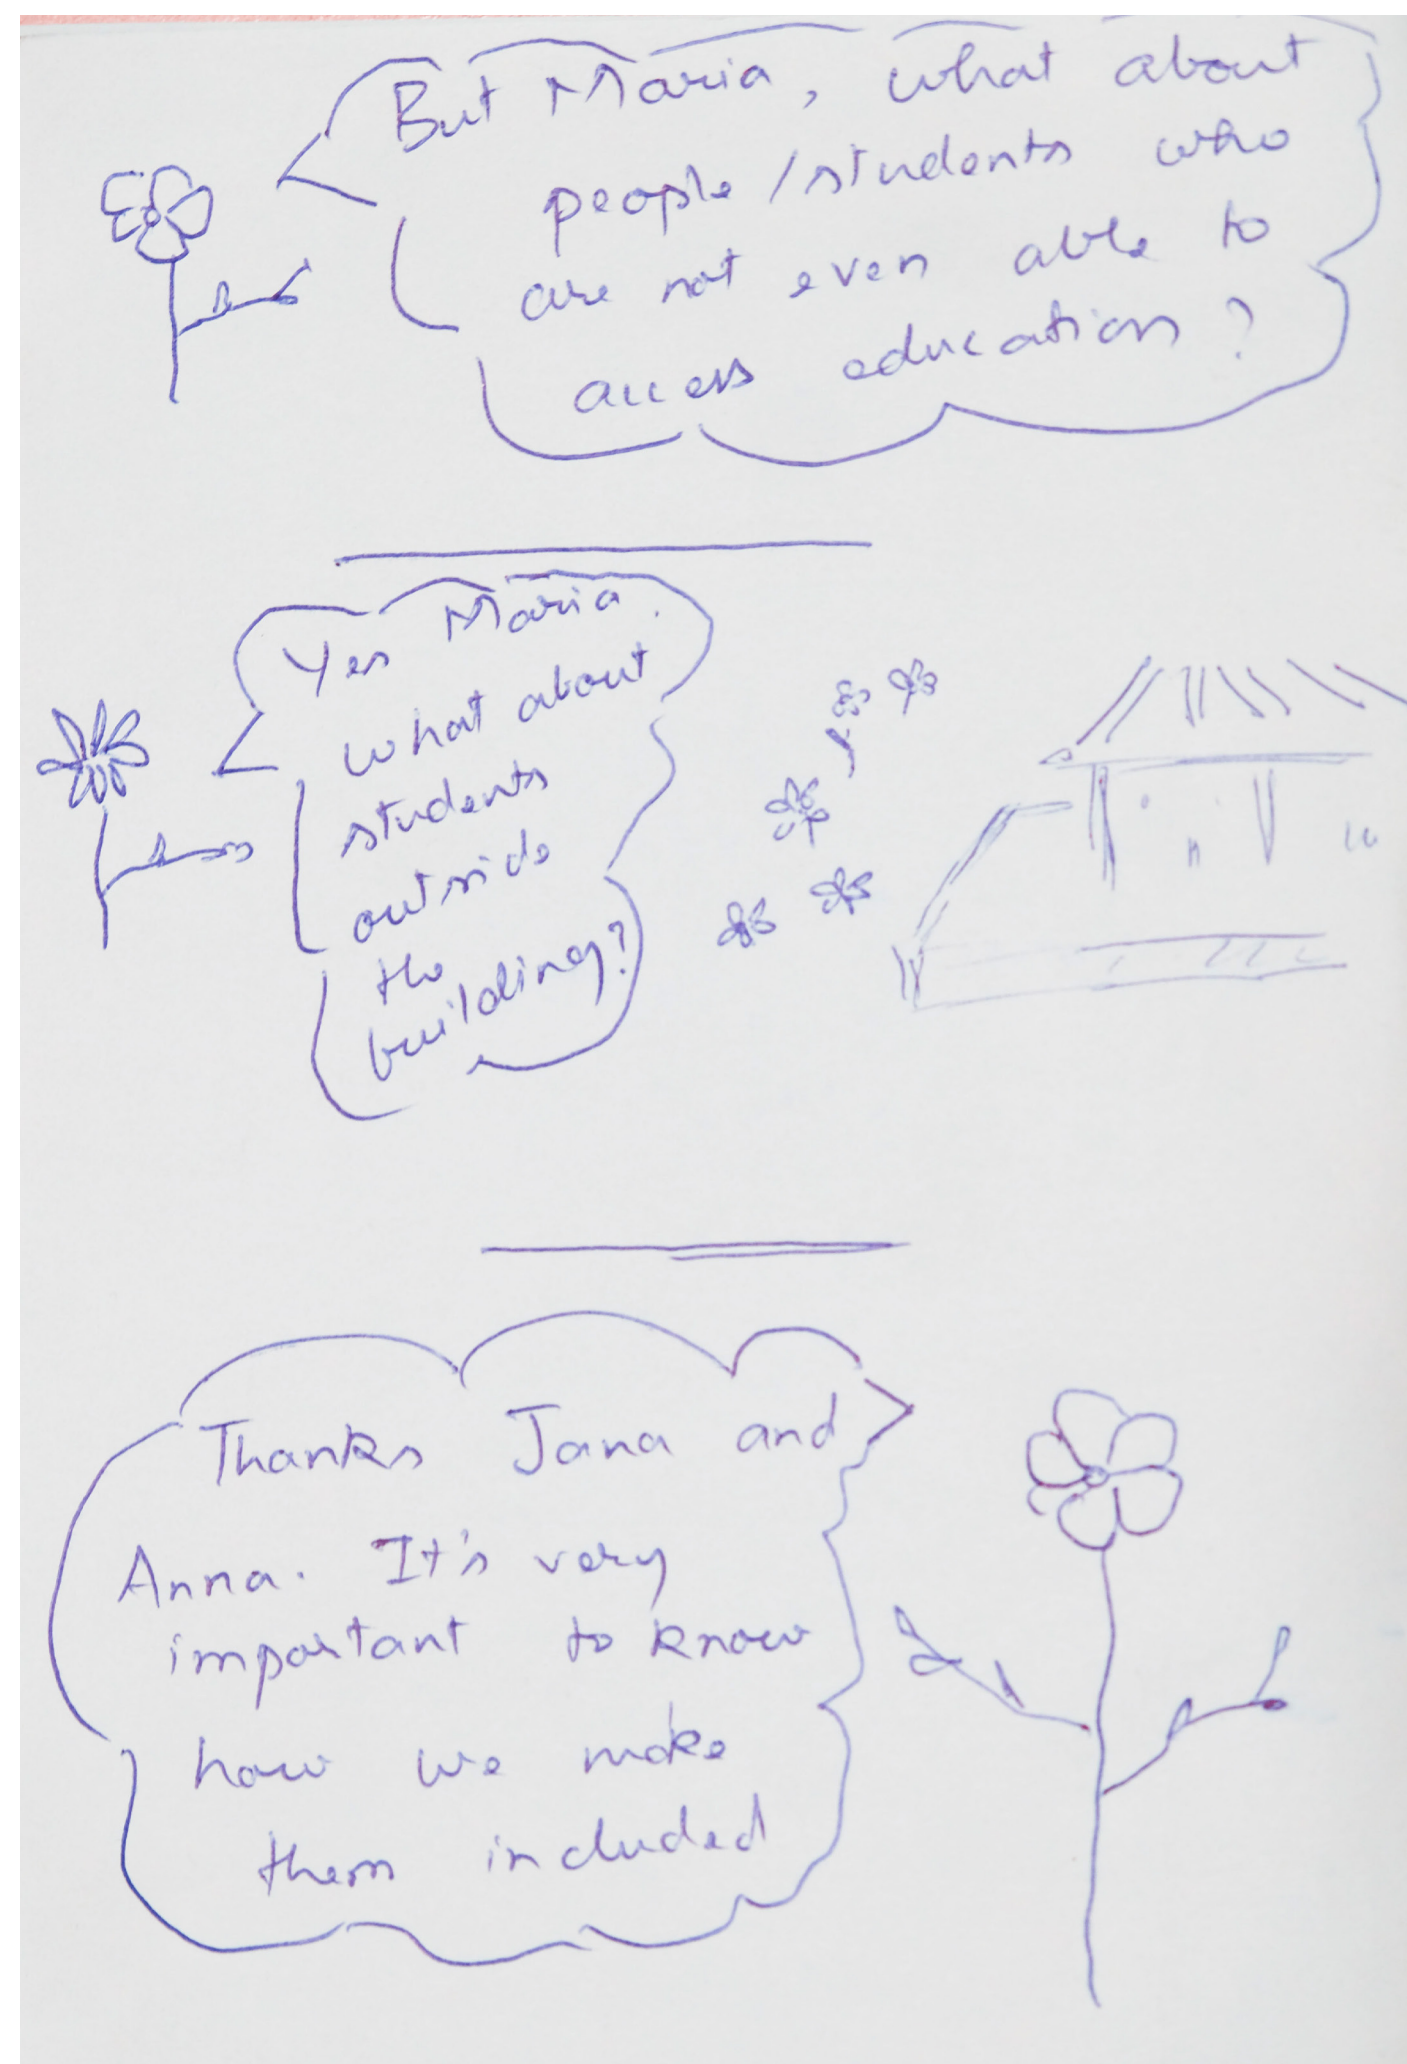 But Maria, what about
people/students who
are not even able to
access education?
Yes Maria.
What about
students
outside
the
building?
Thanks Jana and
Anna. It's very
important to know
how we make
them included